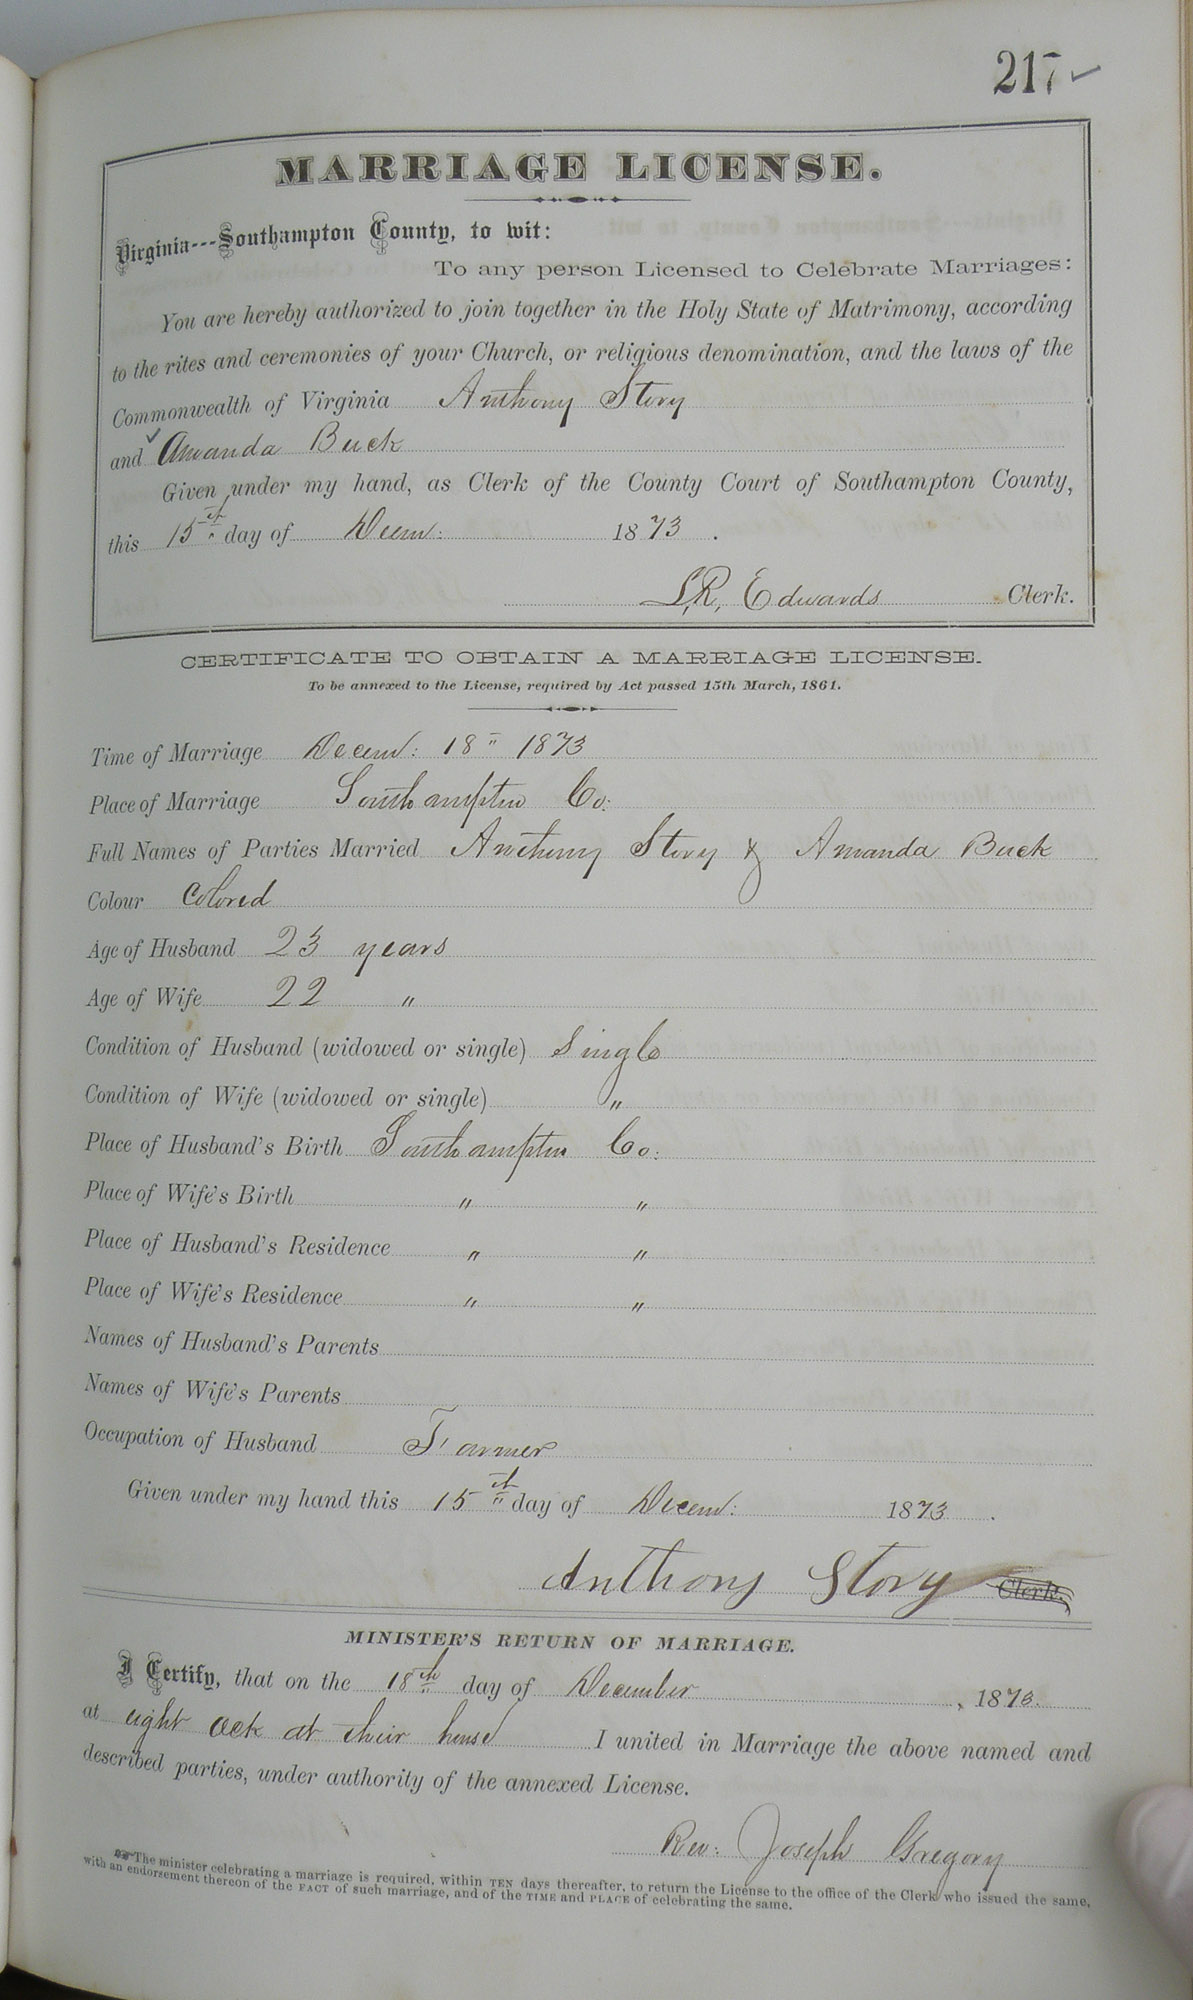 217
MARRIAGE LICENSE.
Virginia---Southampton County, to wit:
To any person Licensed to Celebrate Marriages:
You are hereby authorized to join together in the Holy State of Matrimony, according
to the rites and ceremonies of your Church, or religious denomination, and the laws of the
Commonwealth of Virginia Anthony Story
and Amanda Buck
Given under my hand, as Clerk of the County Court of Southampton County,
this 15th day of Decem: 1873.
L.R. Edwards Clerk.
CERTIFICATE TO OBTAIN A MARRIAGE LICENSE.
To be annexed to the License, required by Act passed 15th March, 1861.
Time of Marriage Decem: 18" 1873
Place of Marriage Southampton Co:
Full Names of Parties Married Anthony Story & Amanda Buck
Colour Colored
Age of Husband 23 years
Age of Wife 22 "
Condition of Husband (widowed or single) Single
Condition of Wife (widowed or single) "
Place of Husband's Birth Southampton Co:
Place of Wife's Birth " "
Place of Husband's Residence " "
Place of Wife's Residence " "
Names of Husband's Parents
Names of Wife's Parents
Occupation of Husband Farmer
Given under my hand this 15th day of Decem: 1873.
Anthony Story Clerk.
MINISTER'S RETURN OF MARRIAGE.
I Certify, that on the 18th day of December, 1873.
at eight ock at their house I united in Marriage the above named and
described parties, under authority of the annexed License.
Rev: Joseph Gregory
The minister celebrating a marriage is required, within TEN days thereafter, to return the License to the office of the Clerk who issued the same,
with an endorsement thereon of the FACT of such marriage, and of the TIME and PLACE of celebrating the same.